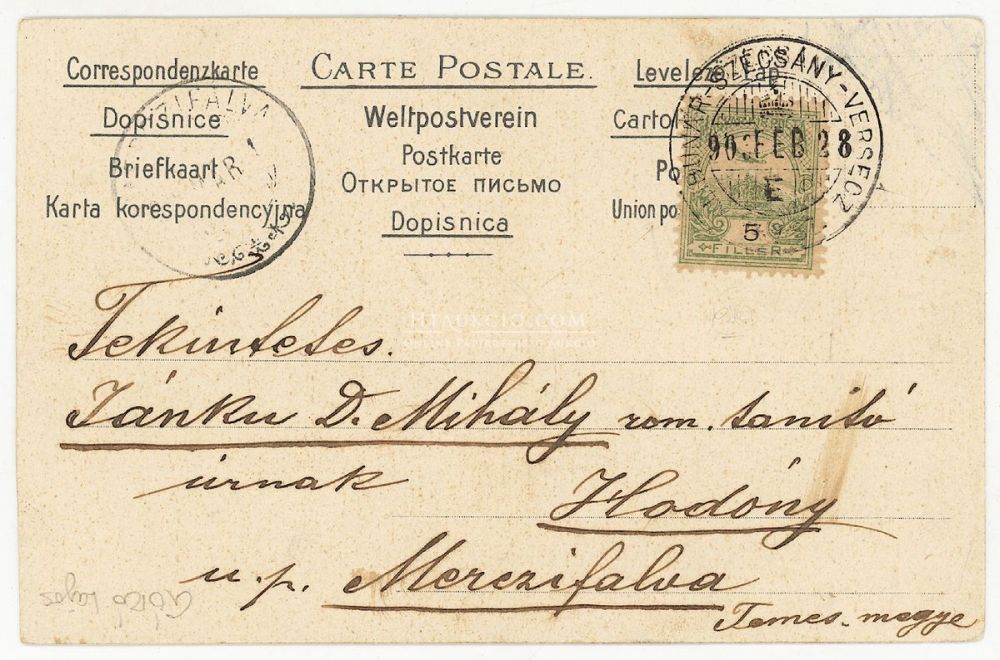 Correspondenzkarte
Dopisnice
Briefkaart
Karta korespondencyjna
CARTE POSTALE.
Weltpostverein
Postkarte
Открытое письмо
Dopisnica
Levelező-Lap
Carto
Po
Union po
ZIFALVA
MAR 1
SZÉCSÁNY-VERSECZ
903 FEB 28
E
5
FILLER
HTAUKCIO.COM
Tekintetes.
Jánku D. Mihály rom. tanító
úrnak Hodóny
u. p. Merczifalva
Temes-megye